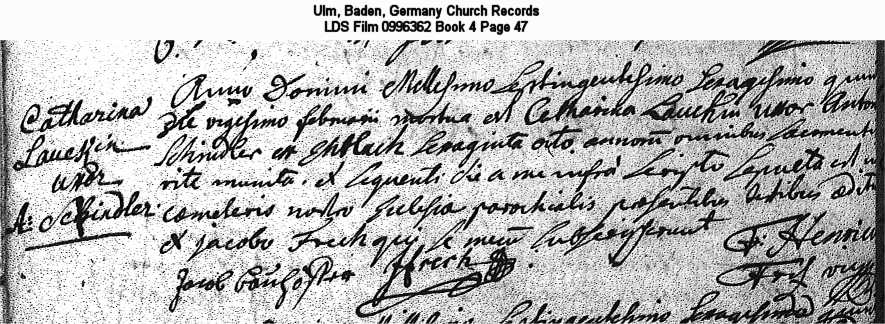 Ulm, Baden, Germany Church Records
LDS Film 0996362 Book 4 Page 47
Catharina
Lauessin
uxor
A: Schindler
Anno Domini Millesimo Septingentesimo Sexagesimo
Die vigesimo februarii mortua est Catharina uxor Anton
Schindler ex Sexaginta octo annorū omnibus Sacramentis
rite munita. et sequenti die a me infra Scripto Sepulta est
caemeterio nostro Eclesia parochialis praesentibus testibus
et jacobo Frech qui se mecū Subscripserunt
Jacob JFrech
F: Henricus